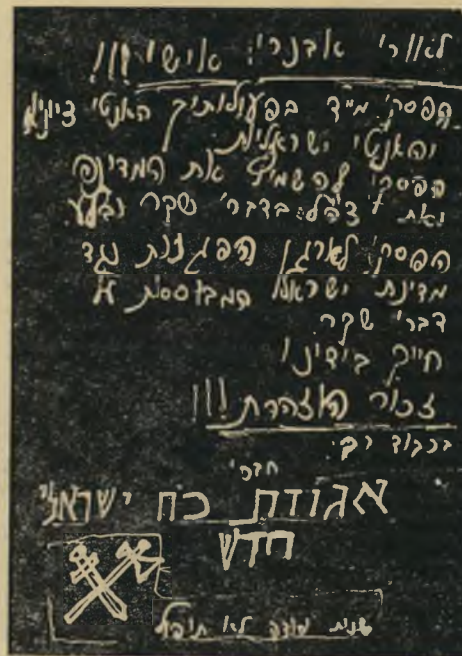 לאורי אבנרי: אישי!!!
הפסק מיד בפעולותיך האנטי ציוניות
והאנטי ישראליות.
הפסק להשמיץ את המדינה
ואת צה"ל בדברי שקר
הפסק לארגן הפגנות נגד
מדינת ישראל המבוססות
דברי שקר.
חייך בידינו!
זכור האזהרה!!!
בכבוד רב:
חברי
אגודת כח ישראלי
חדש
שנית לא תיפול